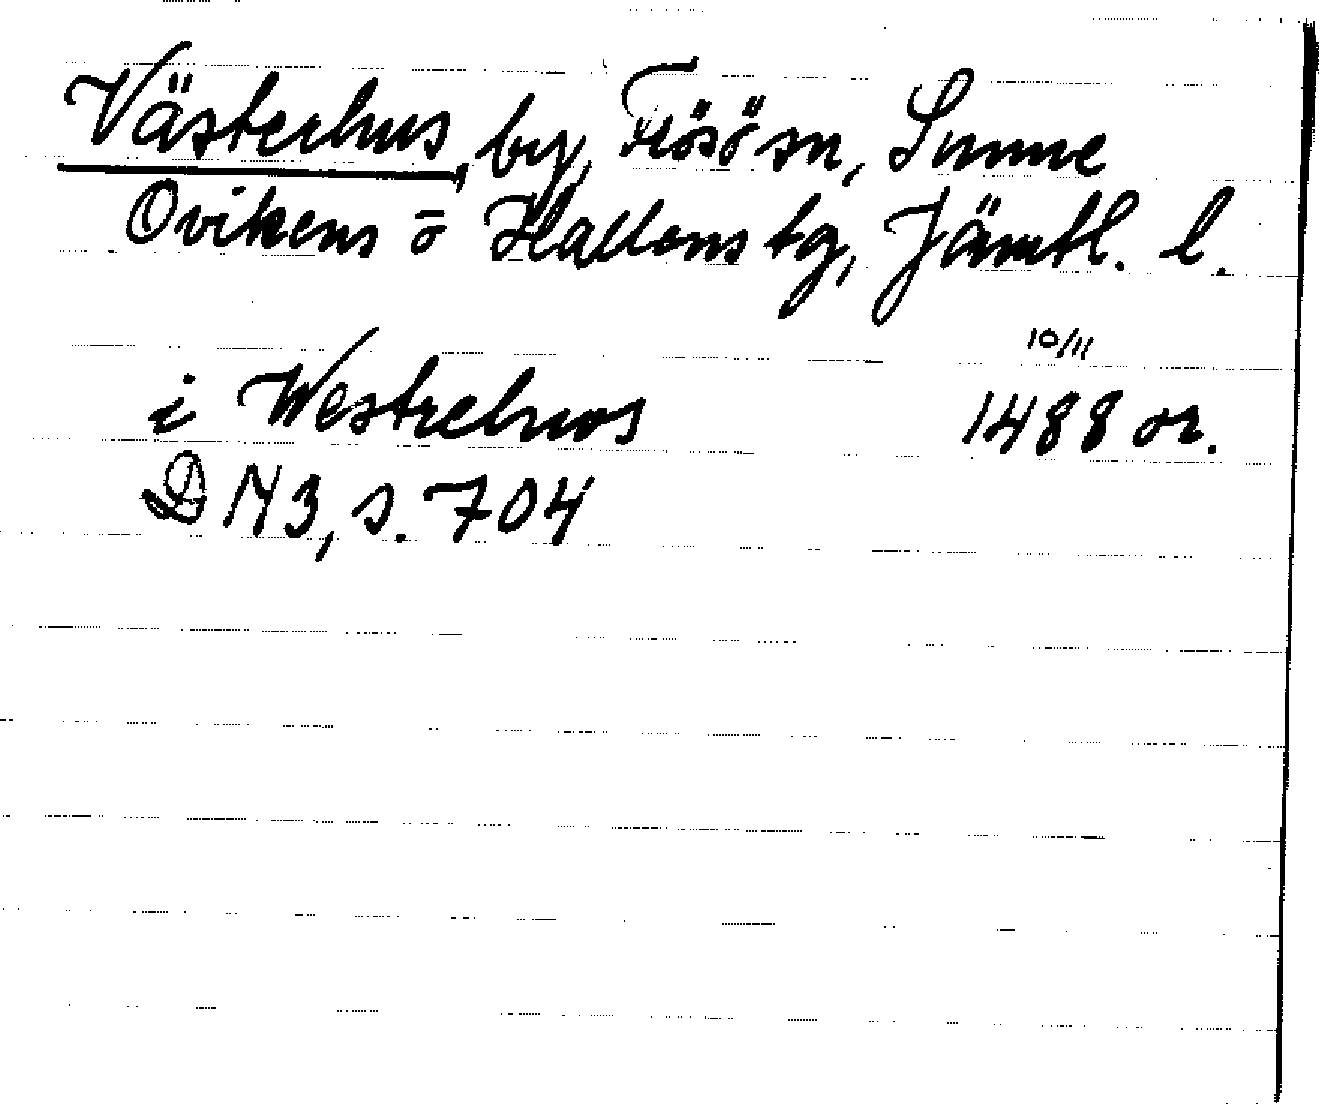 Västerhus, by, Frösö sn, Sunne
Ovikens o Hallens tg, Jämtl. l.
10/11
i Westrehws 1488 or.
DN 3, s. 704